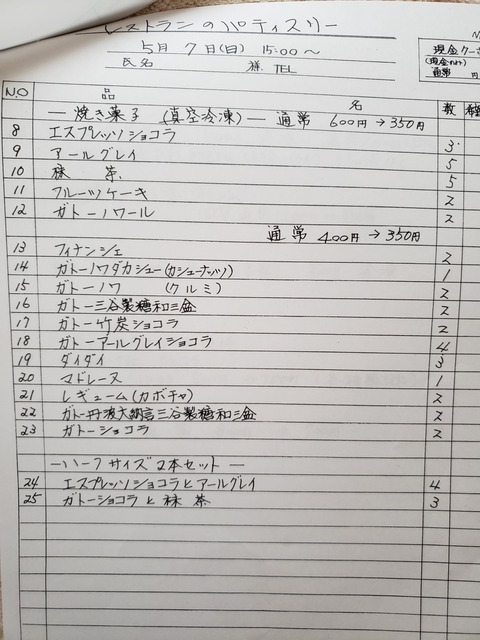 レストランのパティスリー
5月7日(日) 15:00〜
氏名 様 TEL
現金
(現金
通常 円
N.O 品 名 数
― 焼き菓子 (真空冷凍) ― 通常 600円→350円
8 エスプレッソショコラ 3
9 アールグレイ 5
10 抹茶 5
11 フルーツケーキ 2
12 ガトーノワール 2
通常 400円→350円
13 フィナンシェ 2
14 ガトーノワダカシュー(カシューナッツ) 1
15 ガトーノワ (クルミ) 2
16 ガトー三谷製糖和三盆 2
17 ガトー竹炭ショコラ 2
18 ガトーアールグレイショコラ 4
19 ダイダイ 3
20 マドレーヌ 1
21 レギューム(カボチャ) 2
22 ガトー丹波大納言三谷製糖和三盆 2
23 ガトーショコラ 2
―ハーフサイズ2本セット―
24 エスプレッソショコラとアールグレイ 4
25 ガトーショコラと抹茶 3